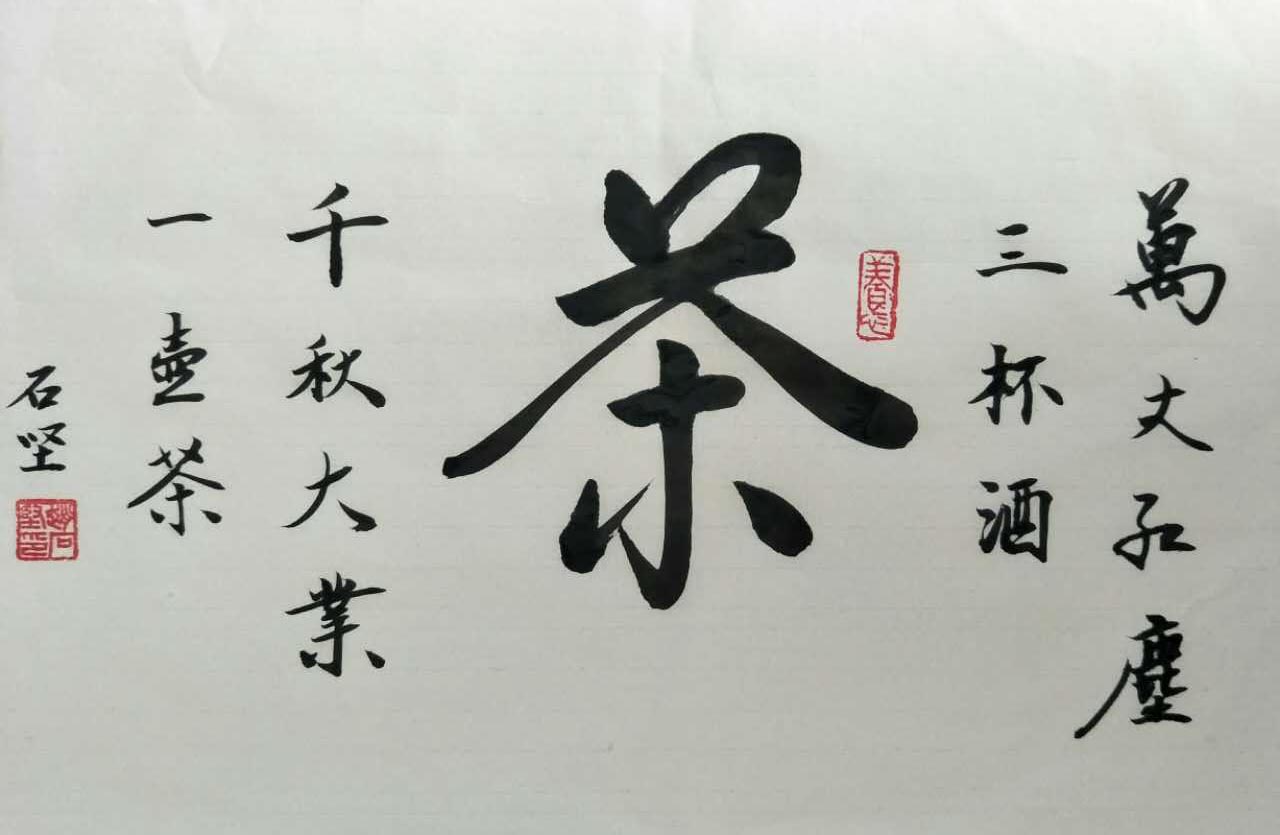 萬丈红塵
三杯酒
茶
千秋大業
一壺茶
石坚